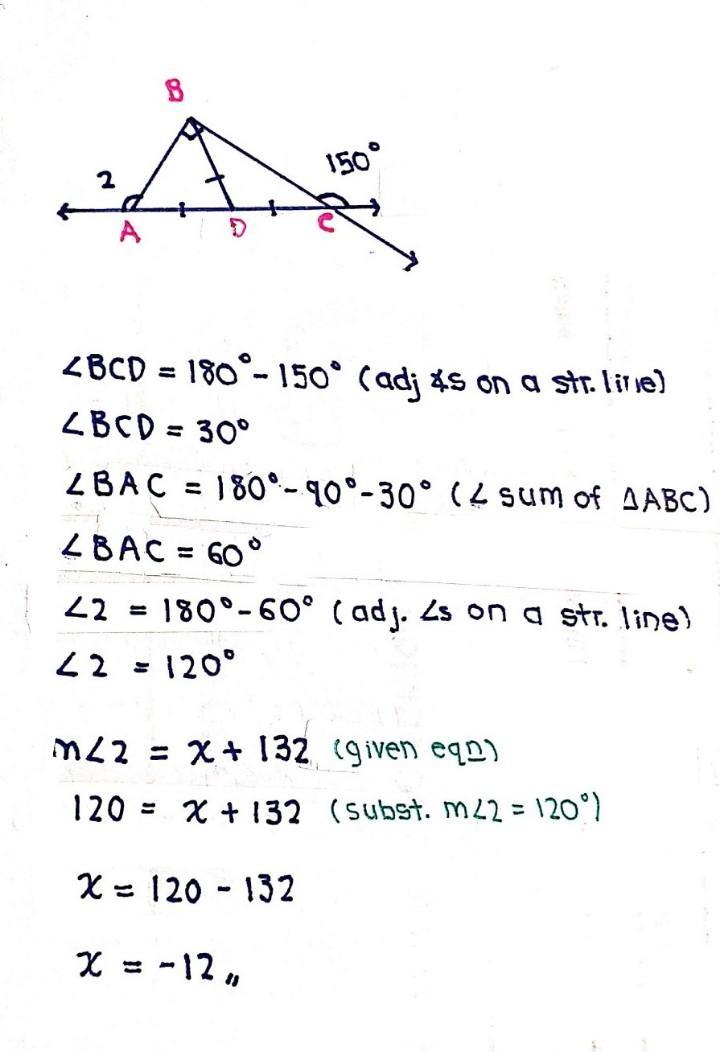 B
150°
2
A
D
C
∠BCD = 180° - 150° (adj ∡s on a str. line)
∠BCD = 30°
∠BAC = 180° - 90° - 30° (∠ sum of △ABC)
∠BAC = 60°
∠2 = 180° - 60° (adj. ∠s on a str. line)
∠2 = 120°
m∠2 = x + 132 (given eqn)
120 = x + 132 (subst. m∠2 = 120°)
x = 120 - 132
x = -12,,